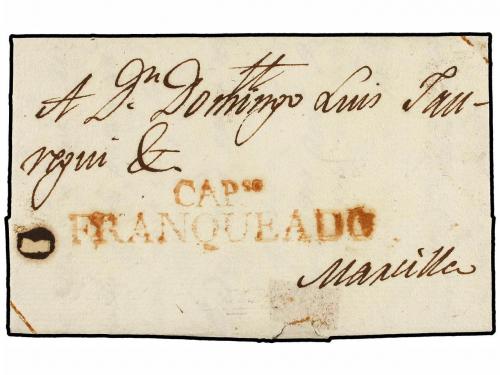 A Dn. Domingo Luis Jau-
regui &.
CAPs.
FRANQUEADO
Marcilla